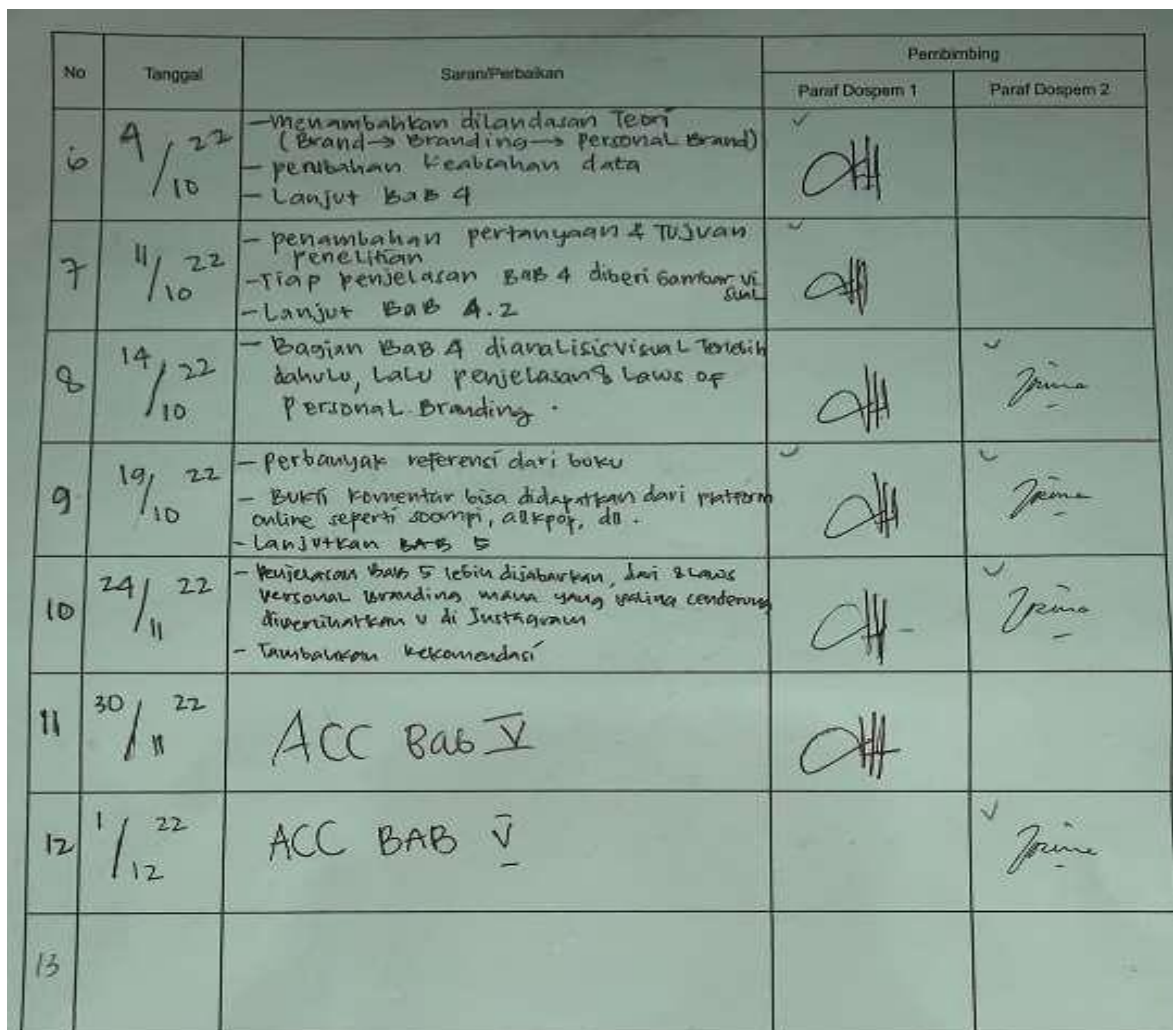 No Tanggal Saran/Perbaikan Pembimbing
Paraf Dospem 1 Paraf Dospem 2
6 4/10 22 - menambahkan dilandasan Teori
(Brand → Branding → Personal Brand)
- perubahan keabsahan data
- Lanjut BaB 4
7 11/10 22 - penambahan pertanyaan & Tujuan
penelitian
- Tiap penjelasan BAB 4 diberi Gambar vi
sual
- Lanjut BaB 4.2
8 14/10 22 - Bagian BaB 4 dianalisis visual Terlebih
dahulu, Lalu penjelasan 8 Laws of
Personal Branding.
9 19/10 22 - perbanyak referensi dari buku
- Bukti komentar bisa didapatkan dari platform
online seperti soompi, allkpop, dll.
- Lanjutkan BAB 5
10 24/11 22 - Penjelasan Bab 5 lebih dijabarkan, dari 8 Laws
Personal Branding mana yang paling cenderung
diperlihatkan V di Instagram
- Tambahkan Rekomendasi
11 30/11 22 ACC Bab V
12 1/12 22 ACC BAB V
13